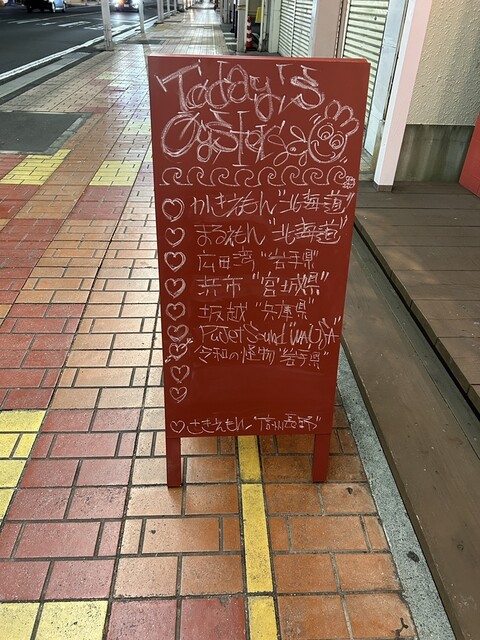 Today's
Oyster
♡ かきえもん "北海道"
♡ まるえもん "北海道"
♡ 広田湾 "岩手県"
♡ 浜市 "宮城県"
♡ 坂越 "兵庫県"
♡ Puget Sound "WA USA"
♡ 令和の怪物 "岩手県"
♡
♡
♡ さきえもん "信州長野"